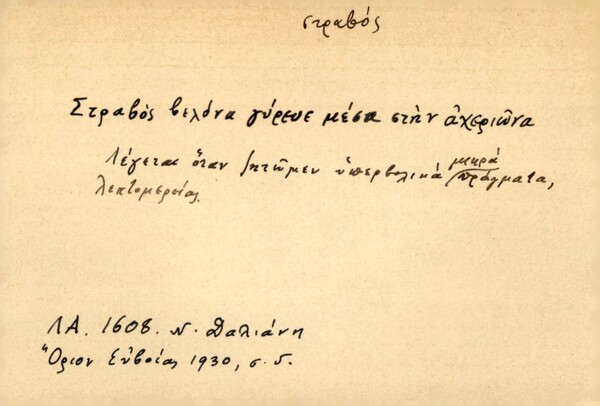 στραβός
Στραβὸς βελόνα γύρευε μέσα στὴν ἀχεριῶνα
Λέγεται ὅταν ζητῶμεν ὑπερβολικά μικρά πράγματα,
λεπτομερείας.
ΛΑ. 1608. Ν. Παλιάνη
Ὅριον Εὐβοίας 1930, σ. 5.